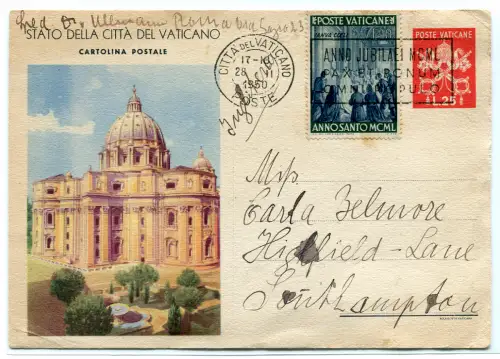 Ullmann Roma Via
STATO DELLA CITTÀ DEL VATICANO
CARTOLINA POSTALE
CITTÀ DEL VATICANO
17-18
28 VI
1950
POSTE
POSTE VATICANE
ANNO JUBILAEI MCML
PAX ET BONUM
OMNI POPULO
ANNO SANTO MCML
POSTE VATICANE
L.25
Miss
Carla Belmore
Highfield-Lane
Southampton